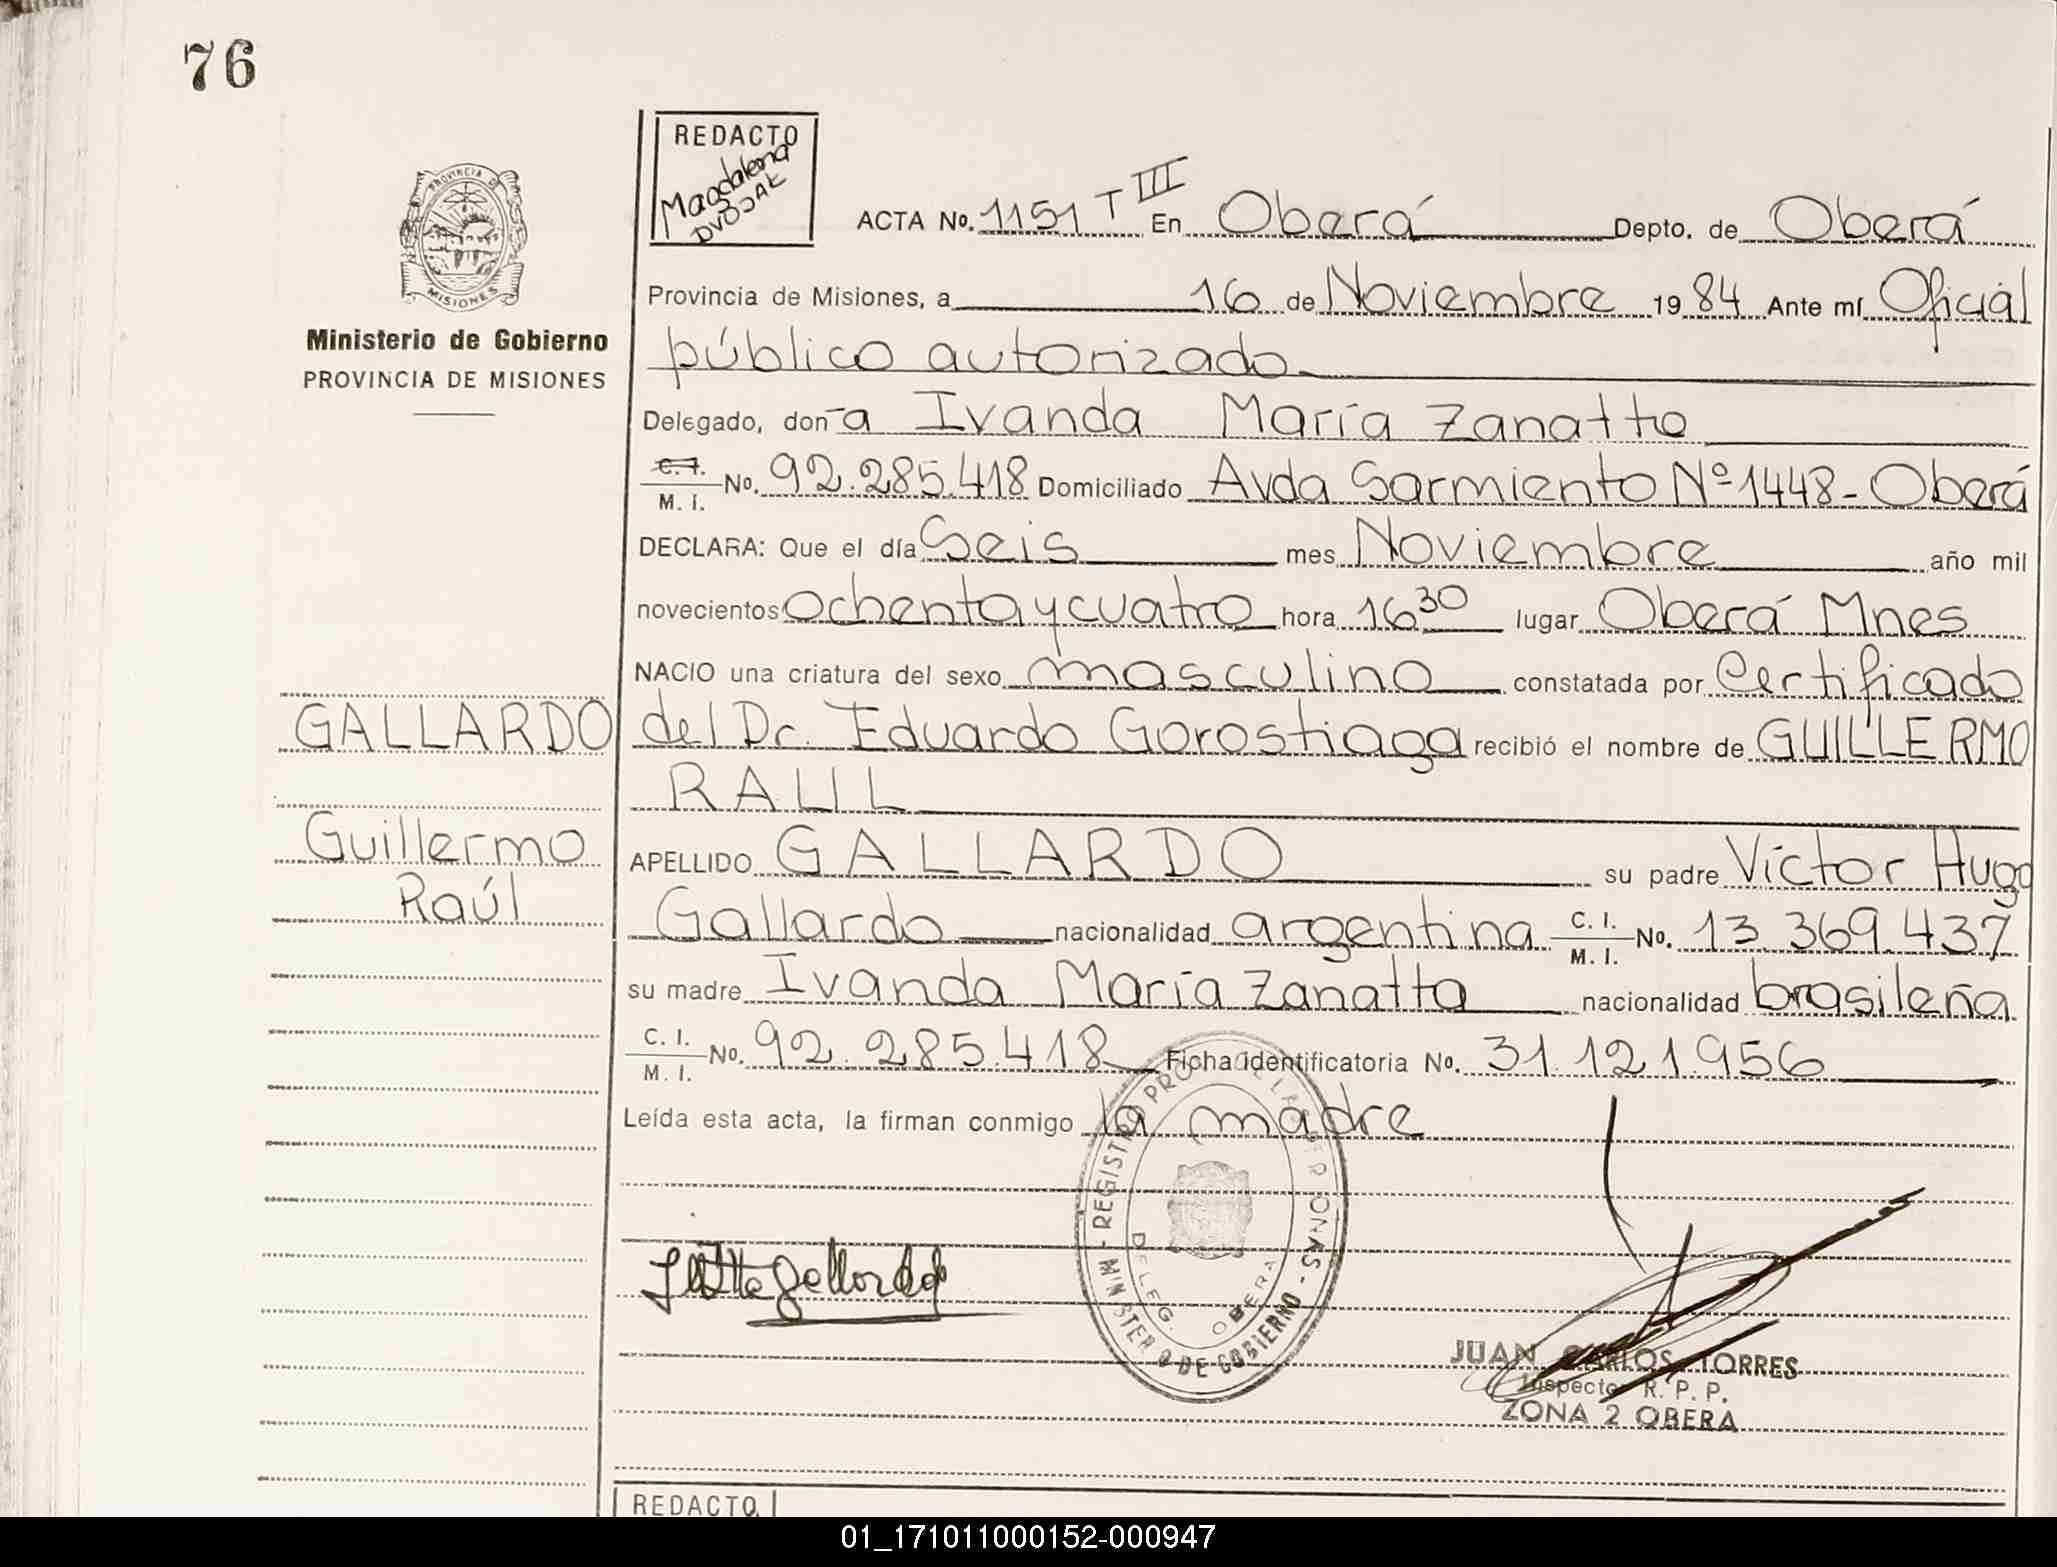 76
REDACTO
Magdalena
DVOJAK
PROVINCIA D
MISIONES
Ministerio de Gobierno
PROVINCIA DE MISIONES
ACTA No. 1151 T III En Oberá Depto. de Oberá
Provincia de Misiones, a 16 de Noviembre 1984 Ante mí Oficial
público autorizado
Delegado, don-a Ivanda María Zanatta
C. I. M. I. No. 92.285.418 Domiciliado Avda Sarmiento Nº 1448 - Oberá
DECLARA: Que el día Seis mes Noviembre año mil
novecientos ochenta y cuatro hora 16 30 lugar Oberá Mnes
NACIO una criatura del sexo masculino constatada por Certificado
GALLARDO
del Dr. Eduardo Gorostiaga recibió el nombre de GUILLERMO
RAUL
Guillermo
Raúl
APELLIDO GALLARDO su padre Víctor Hugo
Gallardo nacionalidad argentina C. I. M. I. No. 13.369.437
su madre Ivanda María Zanatta nacionalidad brasileña
C. I. M. I. No. 92.285.418 Ficha identificatoria No. 31.121.956
Leída esta acta, la firman conmigo la madre
REGISTRO PRO DE LAS PERSONAS - MINISTERIO DE GOBIERNO -
DELEG. OBERA
JUAN CARLOS TORRES
Inspector R. P. P.
ZONA 2 OBERA
REDACTO
01_171011000152-000947